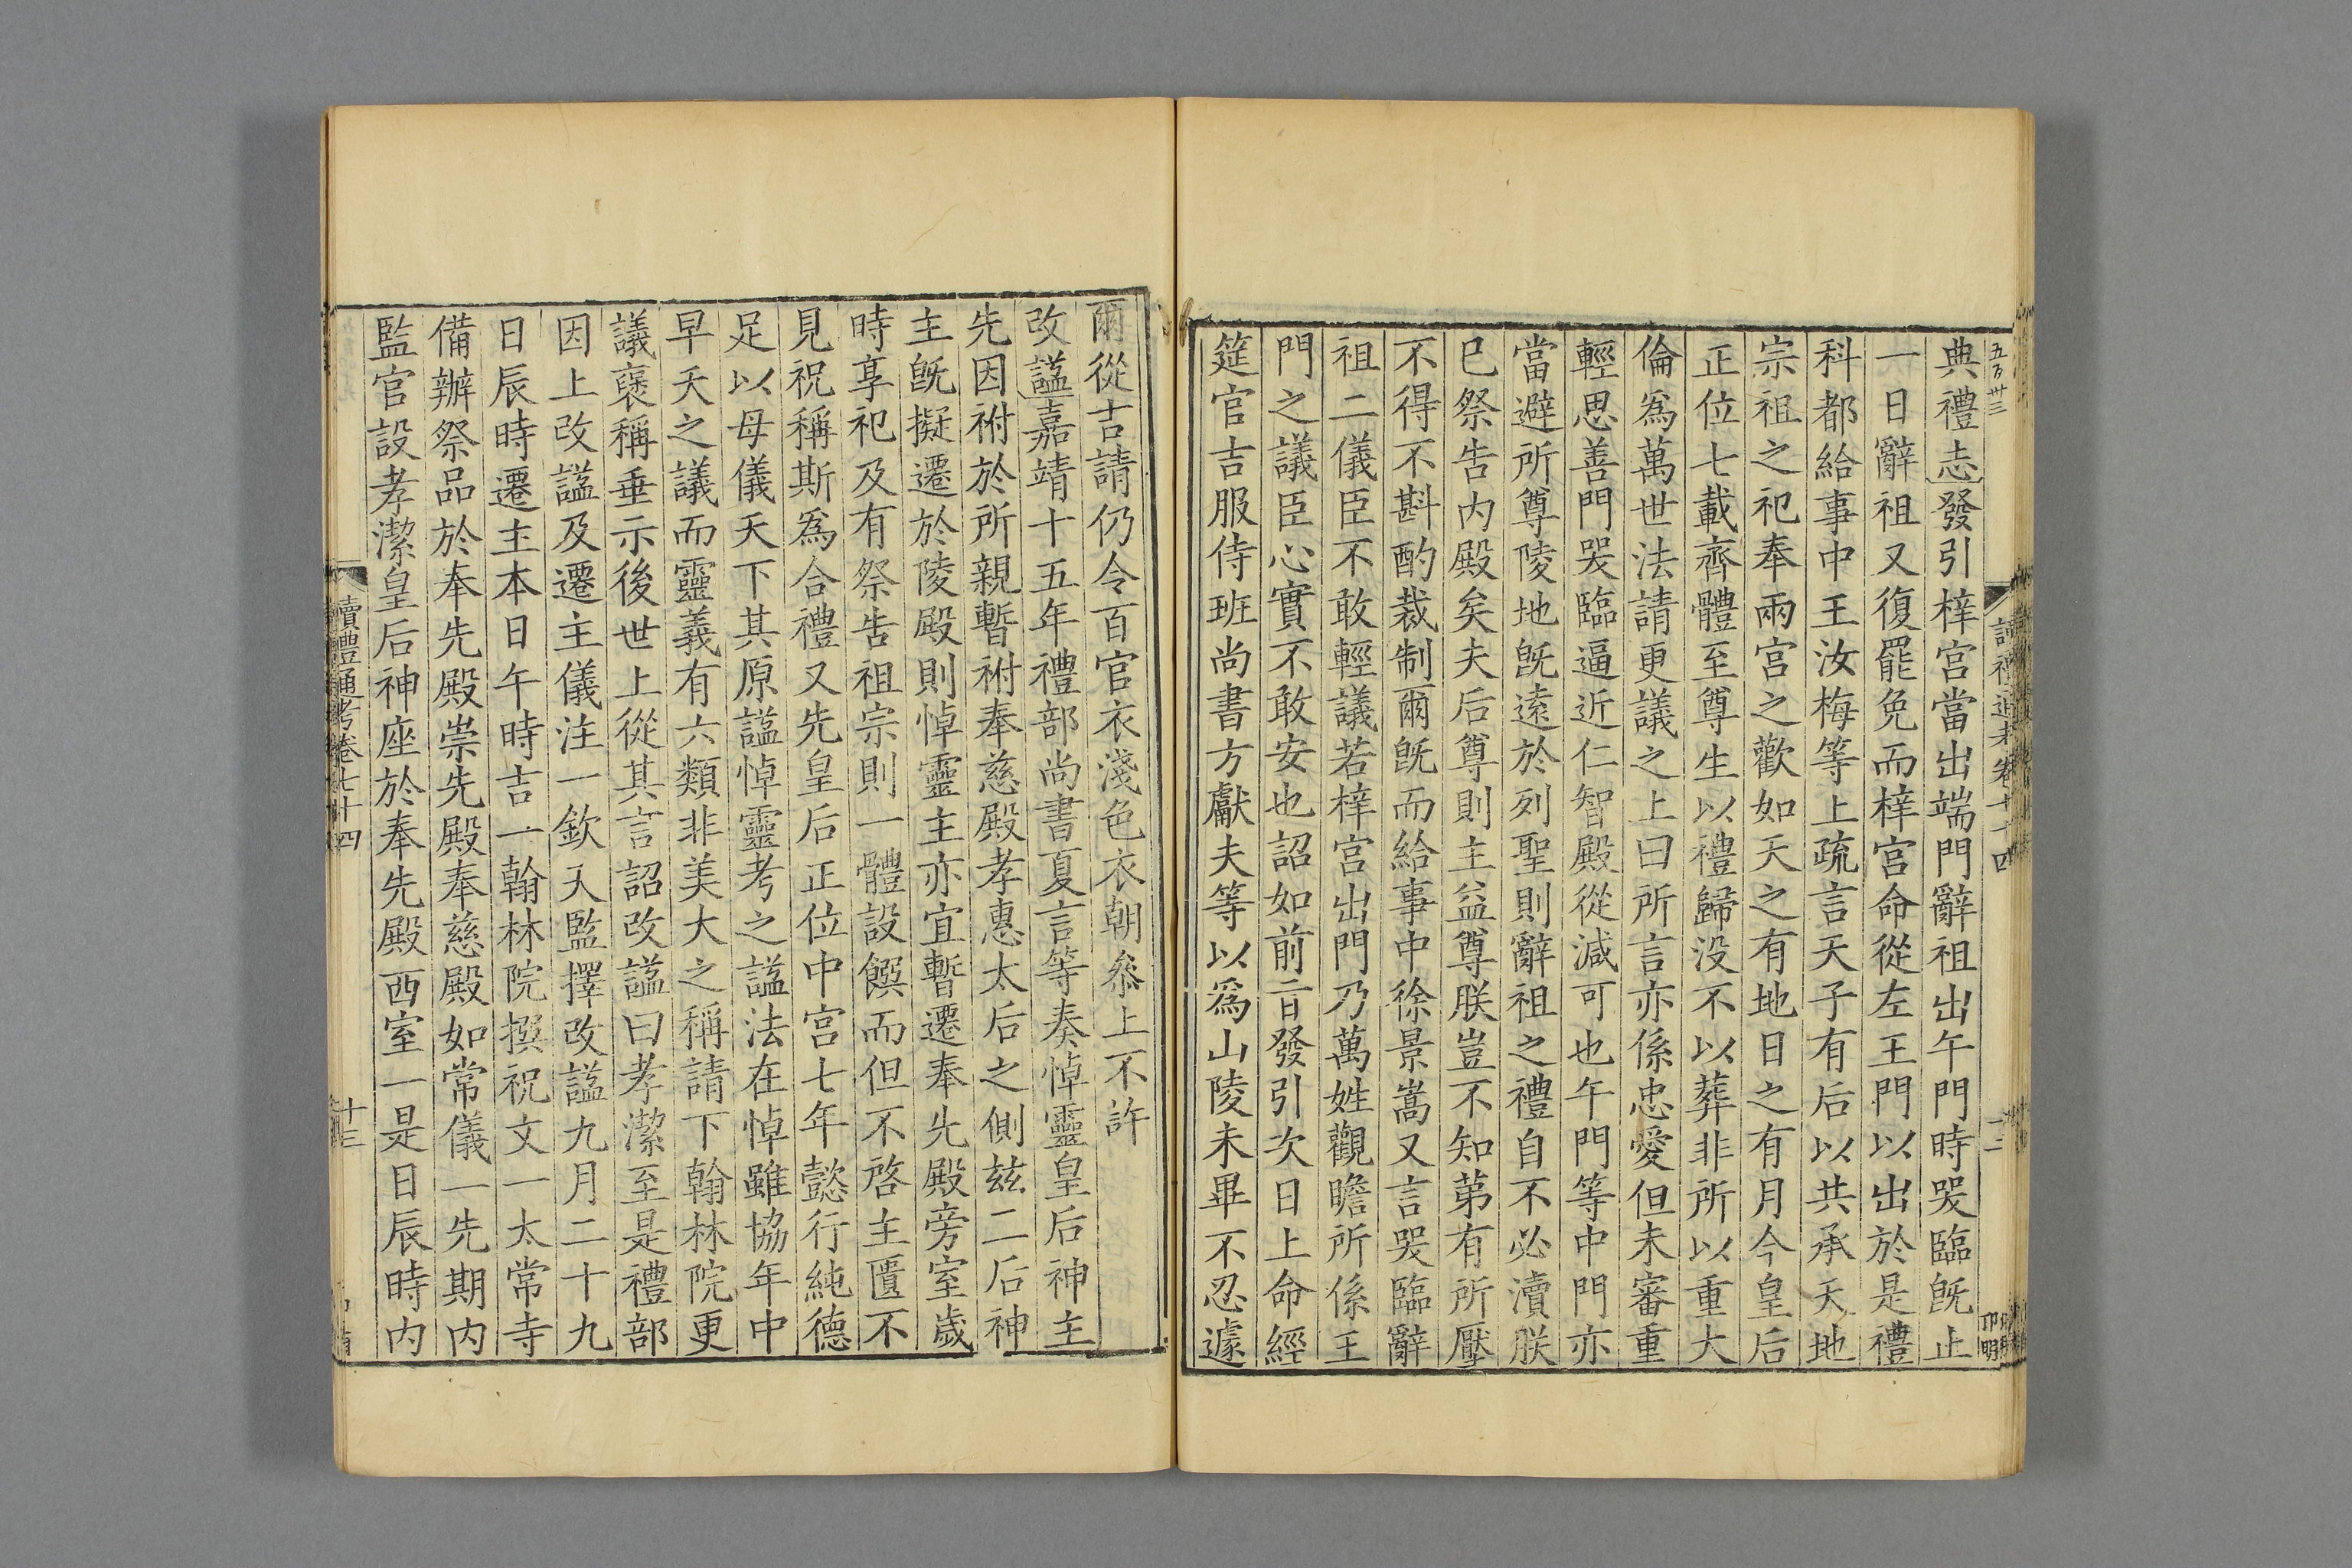 五百卅三
典禮志發引梓宮當出端門辭祖出午門時哭臨既止
一日辭祖又復罷免而梓宮命從左王門以出於是禮
科都給事中王汝梅等上疏言天子有后以共承天地
宗祖之祀奉兩宮之歡如天之有地日之有月今皇后
正位七載齊體至尊生以禮歸没不以葬非所以重大
倫爲萬世法請更議之上曰所言亦係忠愛但未審重
輕思善門哭臨逼近仁智殿從減可也午門等中門亦
當避所尊陵地既遠於列聖則辭祖之禮自不必瀆朕
已祭告内殿矣夫后尊則主益尊朕豈不知苐有所壓
不得不斟酌裁制爾既而給事中徐景嵩又言哭臨辭
祖二儀臣不敢輕議若梓宮出門乃萬姓觀瞻所係王
門之議臣心實不敢安也詔如前㫖發引次日上命經
筵官吉服侍班尚書方獻夫等以爲山陵未畢不忍遽
爾從吉請仍令百官衣淺色衣朝叅上不許
改謚嘉靖十五年禮部尚書夏言等奏悼靈皇后神主
先因祔於所親暫祔奉慈殿孝惠太后之側兹二后神
主既擬遷於陵殿則悼靈主亦宜暫遷奉先殿旁室歲
時享祀及有祭告祖宗則一體設饌而但不啓主匱不
見祝稱斯爲合禮又先皇后正位中宮七年懿行純德
足以母儀天下其原謚悼靈考之謚法在悼雖協年中
早夭之議而靈義有六類非美大之稱請下翰林院更
議褒稱垂示後世上從其言詔改謚曰孝潔至是禮部
因上改謚及遷主儀注一欽天監擇改謚九月二十九
日辰時遷主本日午時吉一翰林院撰祝文一太常寺
備辦祭品於奉先殿崇先殿奉慈殿如常儀一先期内
監官設孝潔皇后神座於奉先殿西室一是日辰時内
讀禮通考卷七十四
十三